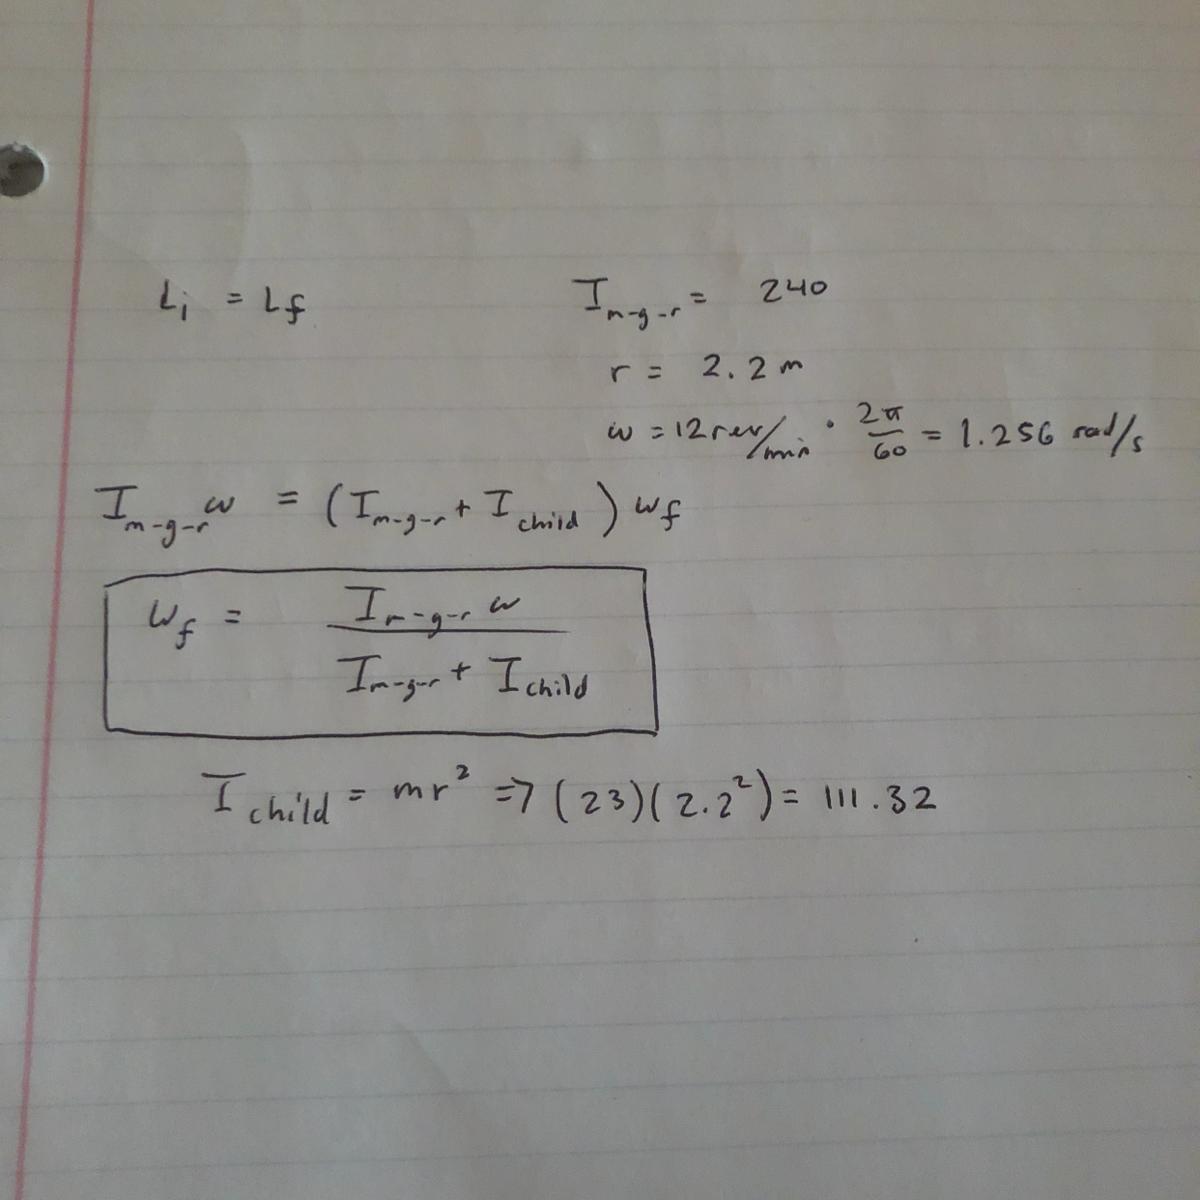 L_i = L_f
I_m-g-r = 240
r = 2.2 m
ω = 12 rev/min · 2π/60 = 1.256 rad/s
I_m-g-r ω = (I_m-g-r + I_child) ω_f
ω_f = I_m-g-r ω / I_m-g-r + I_child
I_child = mr² => (23)(2.2²) = 111.32